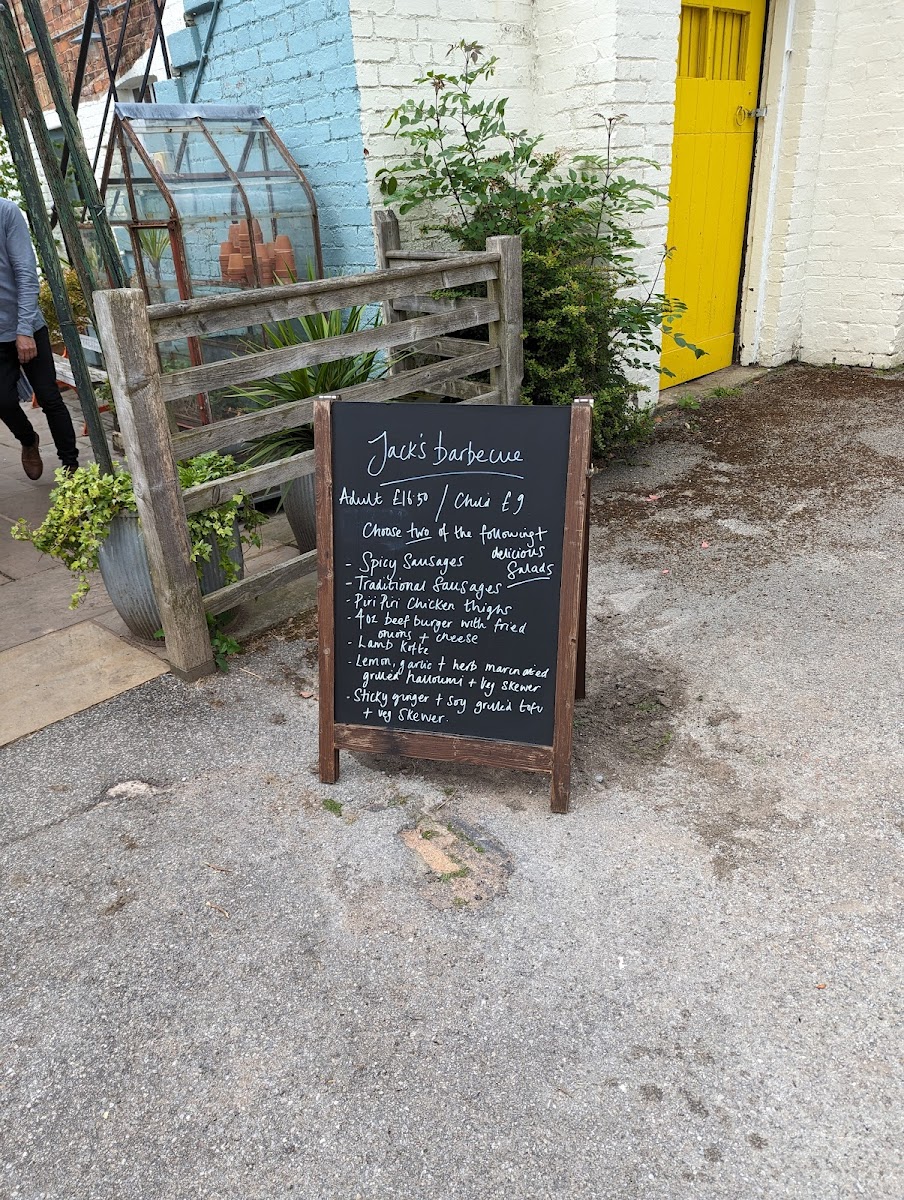 Jack's barbecue
Adult £16.50 / Child £9
Choose two of the following +
delicious
Salads
- Spicy Sausages
- Traditional Sausages
- Piri Piri Chicken thighs
- 4oz beef burger with fried
onions + cheese
- Lamb Kofte
- Lemon, garlic + herb marinated
grilled halloumi + veg skewer
- Sticky ginger + soy grilled tofu
+ veg skewer.